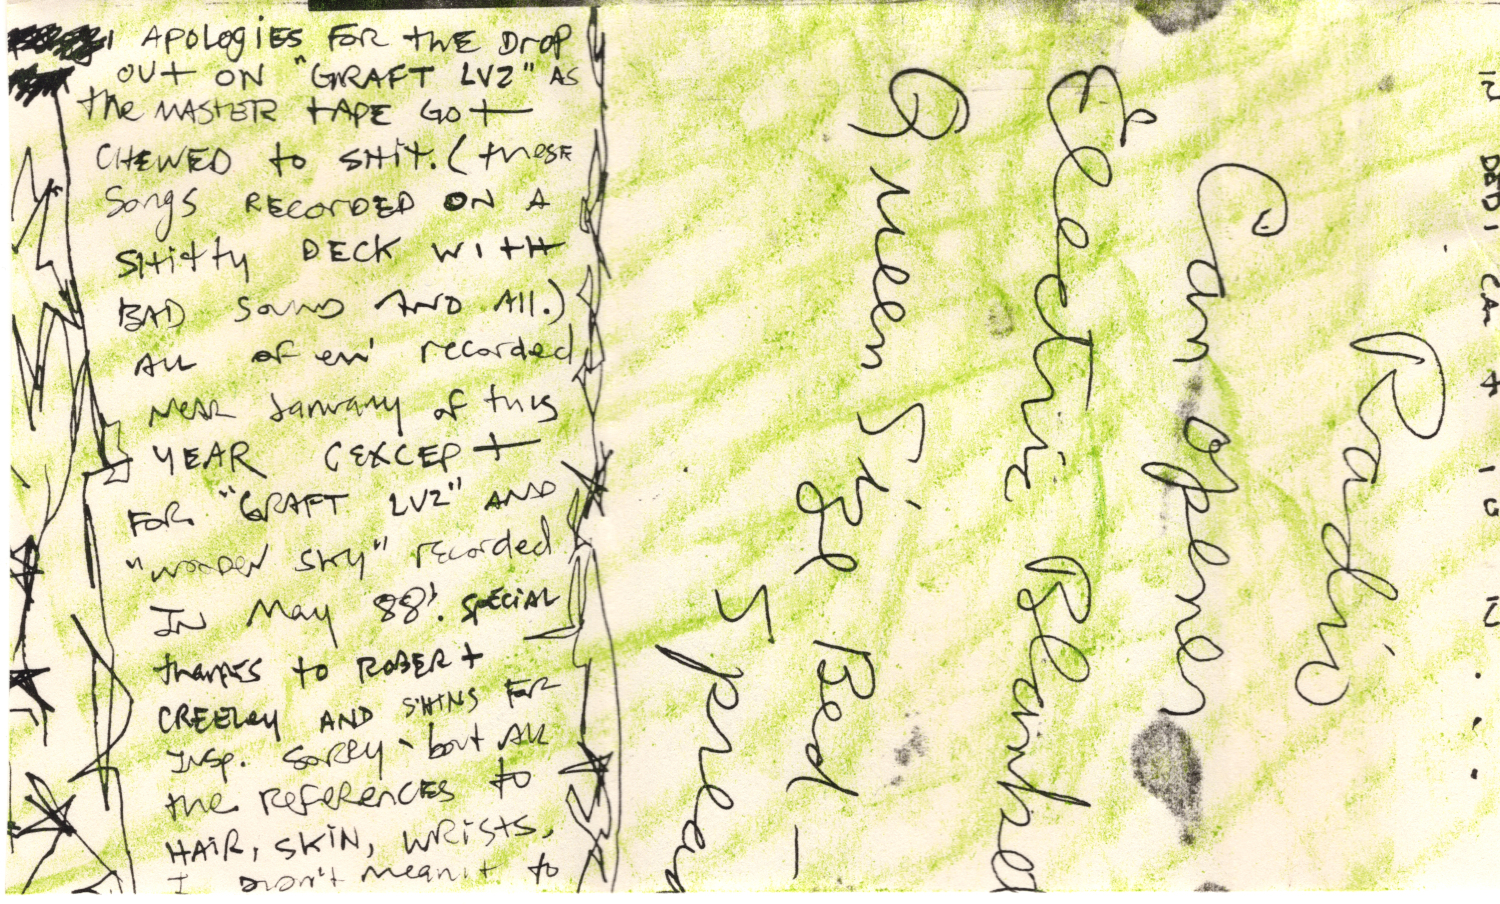 APOLOGIES FOR the DROP
OUT ON "GRAFT LVZ" AS
the MASTER TAPE GOt
CHEWED to SHIT. (these
Songs RECORDED ON A
SHitty DECK WITH
BAD SOUND AND All.)
ALL of em' recorded
NEAR January of this
YEAR (EXCEPt
FOR "GRAFT LVZ" AND
"WOODEN SKY" recorded
IN May 88'. SPECIAL
thanks to ROBERt
CREELey AND SHINS FOR
INSP. SORRY 'bout All
the REFERENCES to
HAIR, SKIN, WRISTS,
I DIDN't MEAN it to
Radio
Can opener
Electric Blanket
Green Size Bed-
Sprea